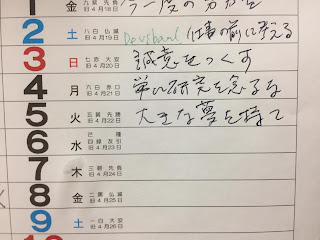 1 金 旧4月18日
2 土 八白 仏滅 旧4月19日 仕事の前に考える
3 日 七赤 大安 旧4月20日 誠意をつくす
4 月 六白 赤口 旧4月21日 常に研究を怠るな
5 火 五黄 先勝 旧4月22日 大きな夢を持て
6 水 芒種 四緑 友引 旧4月23日
7 木 三碧 先負 旧4月24日
8 金 二黒 仏滅 旧4月25日
9 土 一白 大安 旧4月26日